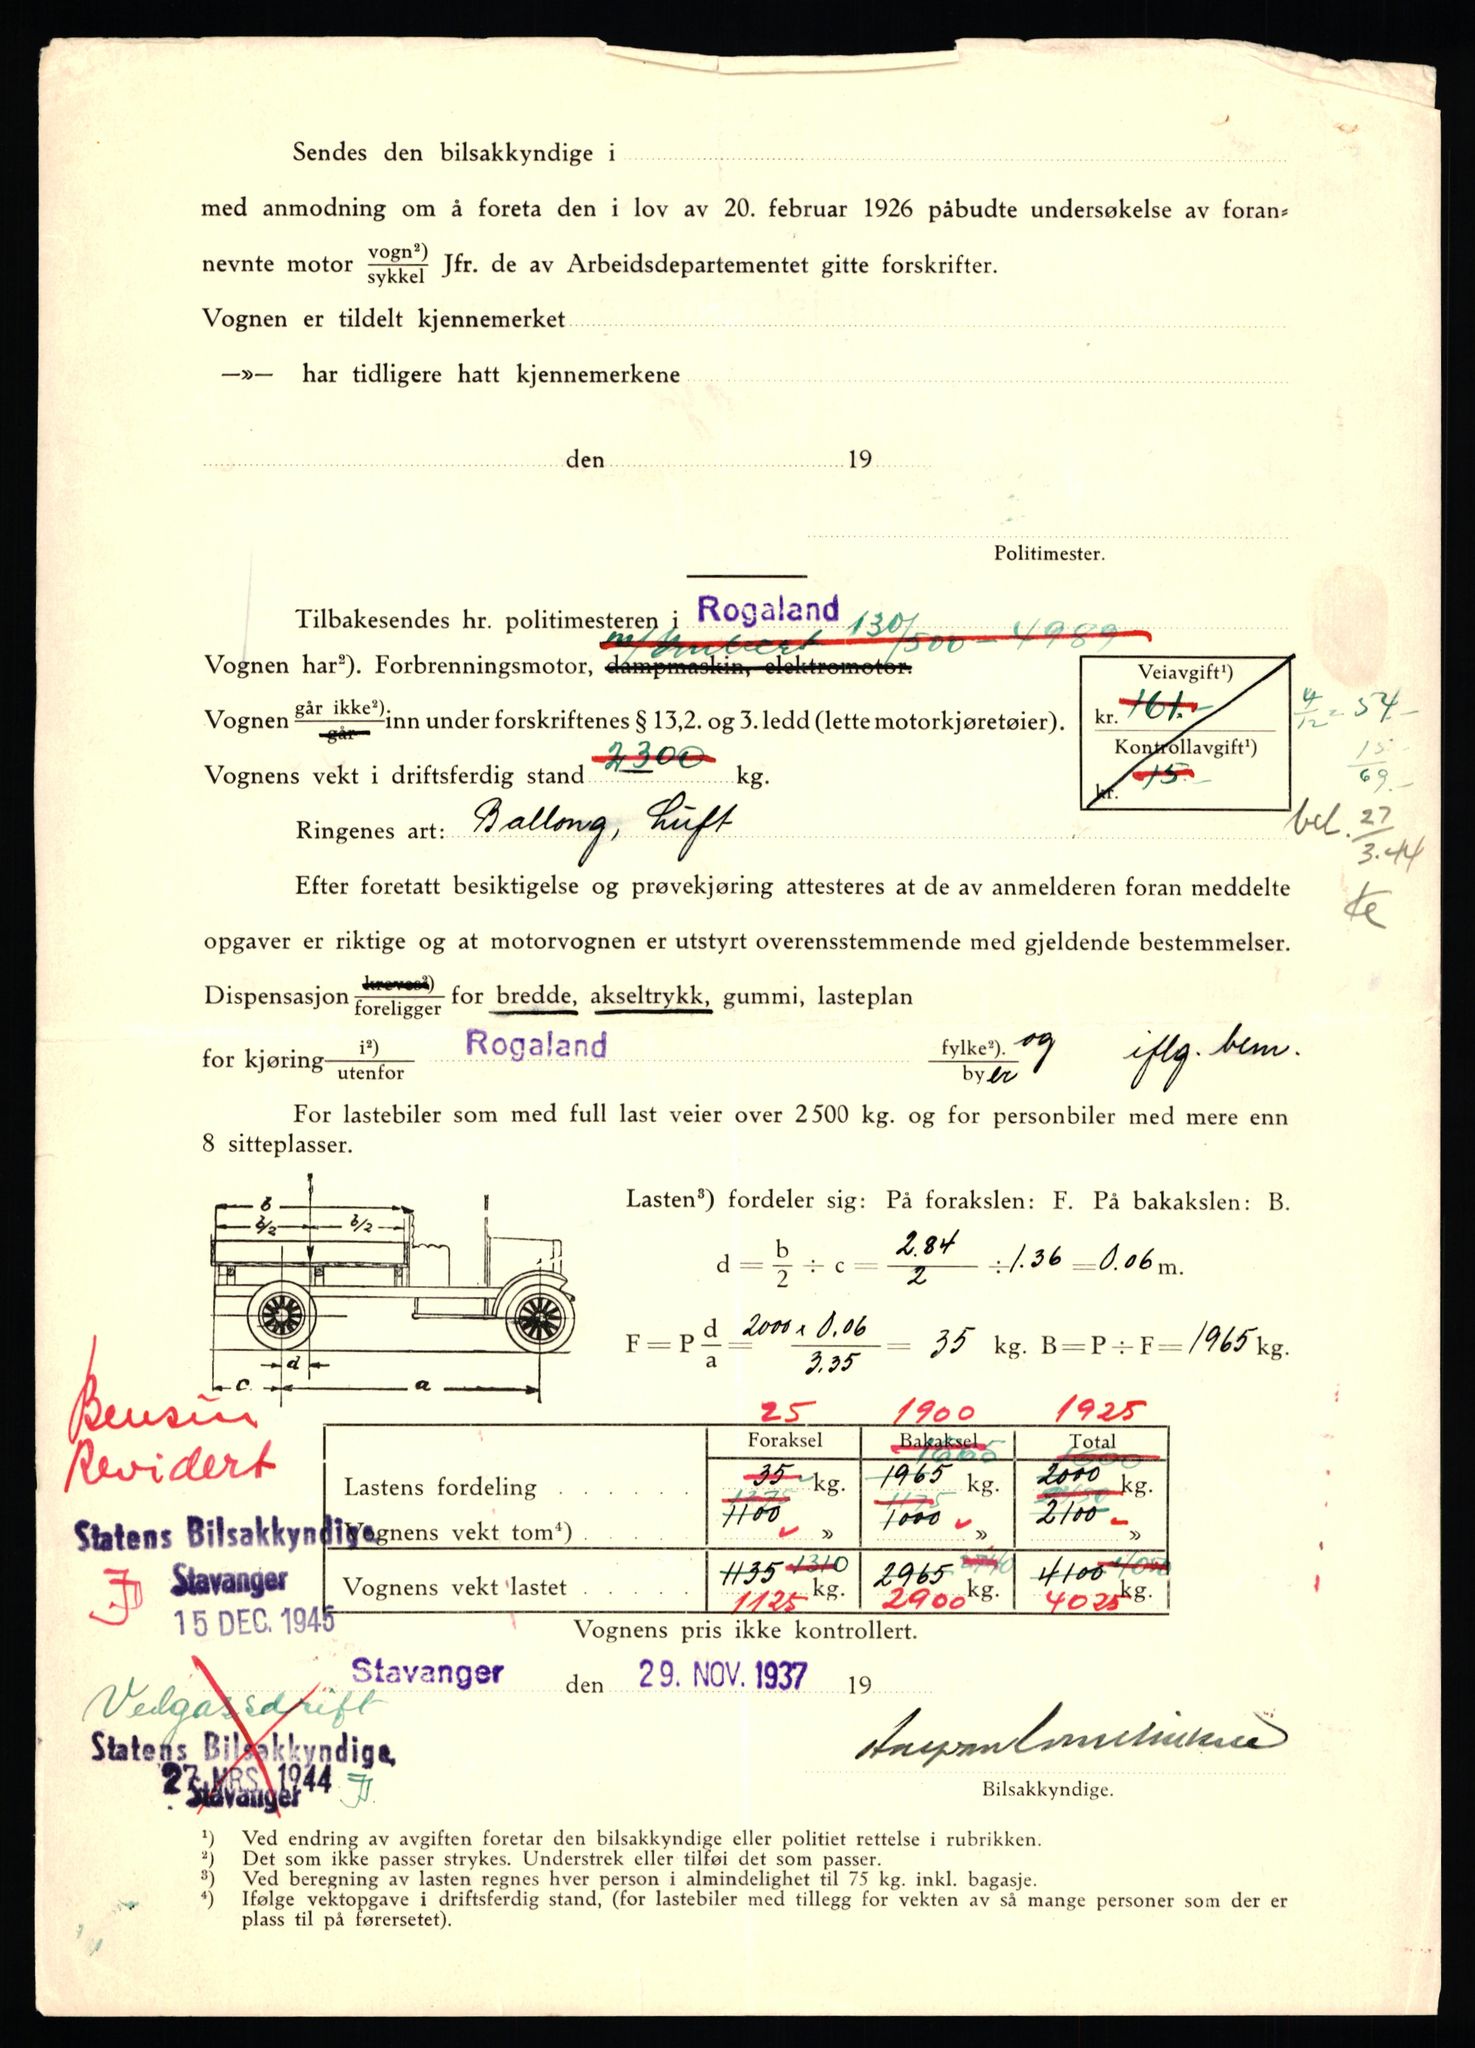 Sendes den bilsakkyndige i
med anmodning om å foreta den i lov av 20. februar 1926 påbudte undersøkelse av foran=
nevnte motor vogn²)/sykkel Jfr. de av Arbeidsdepartementet gitte forskrifter.
Vognen er tildelt kjennemerket
—»— har tidligere hatt kjennemerkene
den 19
Politimester.
Tilbakesendes hr. politimesteren i Rogaland
130/500 - 4989
Vognen har²). Forbrenningsmotor, dampmaskin, elektromotor.
Veiavgift¹)
kr. 161.-
Kontrollavgift¹)
kr. 15.-
4/12 = 54.-
15.-
69.-
bet. 27/3.44
Vognen går ikke²)/går inn under forskriftenes § 13,2. og 3. ledd (lette motorkjøretøier).
Vognens vekt i driftsferdig stand 2300 kg.
Ringenes art: Ballong, Luft
Efter foretatt besiktigelse og prøvekjøring attesteres at de av anmelderen foran meddelte
opgaver er riktige og at motorvognen er utstyrt overensstemmende med gjeldende bestemmelser.
Dispensasjon kreves²)/foreligger for bredde, akseltrykk, gummi, lasteplan
for kjøring i²)/utenfor Rogaland fylke²)./byer og iflg. bem.
For lastebiler som med full last veier over 2500 kg. og for personbiler med mere enn
8 sitteplasser.
b
b/2 b/2
d
c a
Lasten³) fordeler sig: På forakslen: F. På bakakslen: B.
d = b/2 ÷ c = 2.84/2 ÷ 1.36 = 0.06 m.
F = P d/a = 2000 x 0.06/3.35 = 35 kg. B = P ÷ F = 1965 kg.
Bensin
Revidert
25 1900 1925
Foraksel Bakaksel Total
Lastens fordeling 35 kg. 1965 kg. 2000 kg.
Vognens vekt tom⁴) 1100 » 1000 » 2100 »
Vognens vekt lastet 1135 1310 kg. 2965 kg. 4100 kg.
1125 2900 4025
Statens Bilsakkyndige
Stavanger
15 DEC. 1945
Vognens pris ikke kontrollert.
Stavanger den 29. NOV. 1937 19
Vedgassdrift
Statens Bilsakkyndige,
27 MRS. 1944
Stavanger
Bilsakkyndige.
¹) Ved endring av avgiften foretar den bilsakkyndige eller politiet rettelse i rubrikken.
²) Det som ikke passer strykes. Understrek eller tilføi det som passer.
³) Ved beregning av lasten regnes hver person i almindelighet til 75 kg. inkl. bagasje.
⁴) Ifølge vektopgave i driftsferdig stand, (for lastebiler med tillegg for vekten av så mange personer som der er
plass til på førersetet).